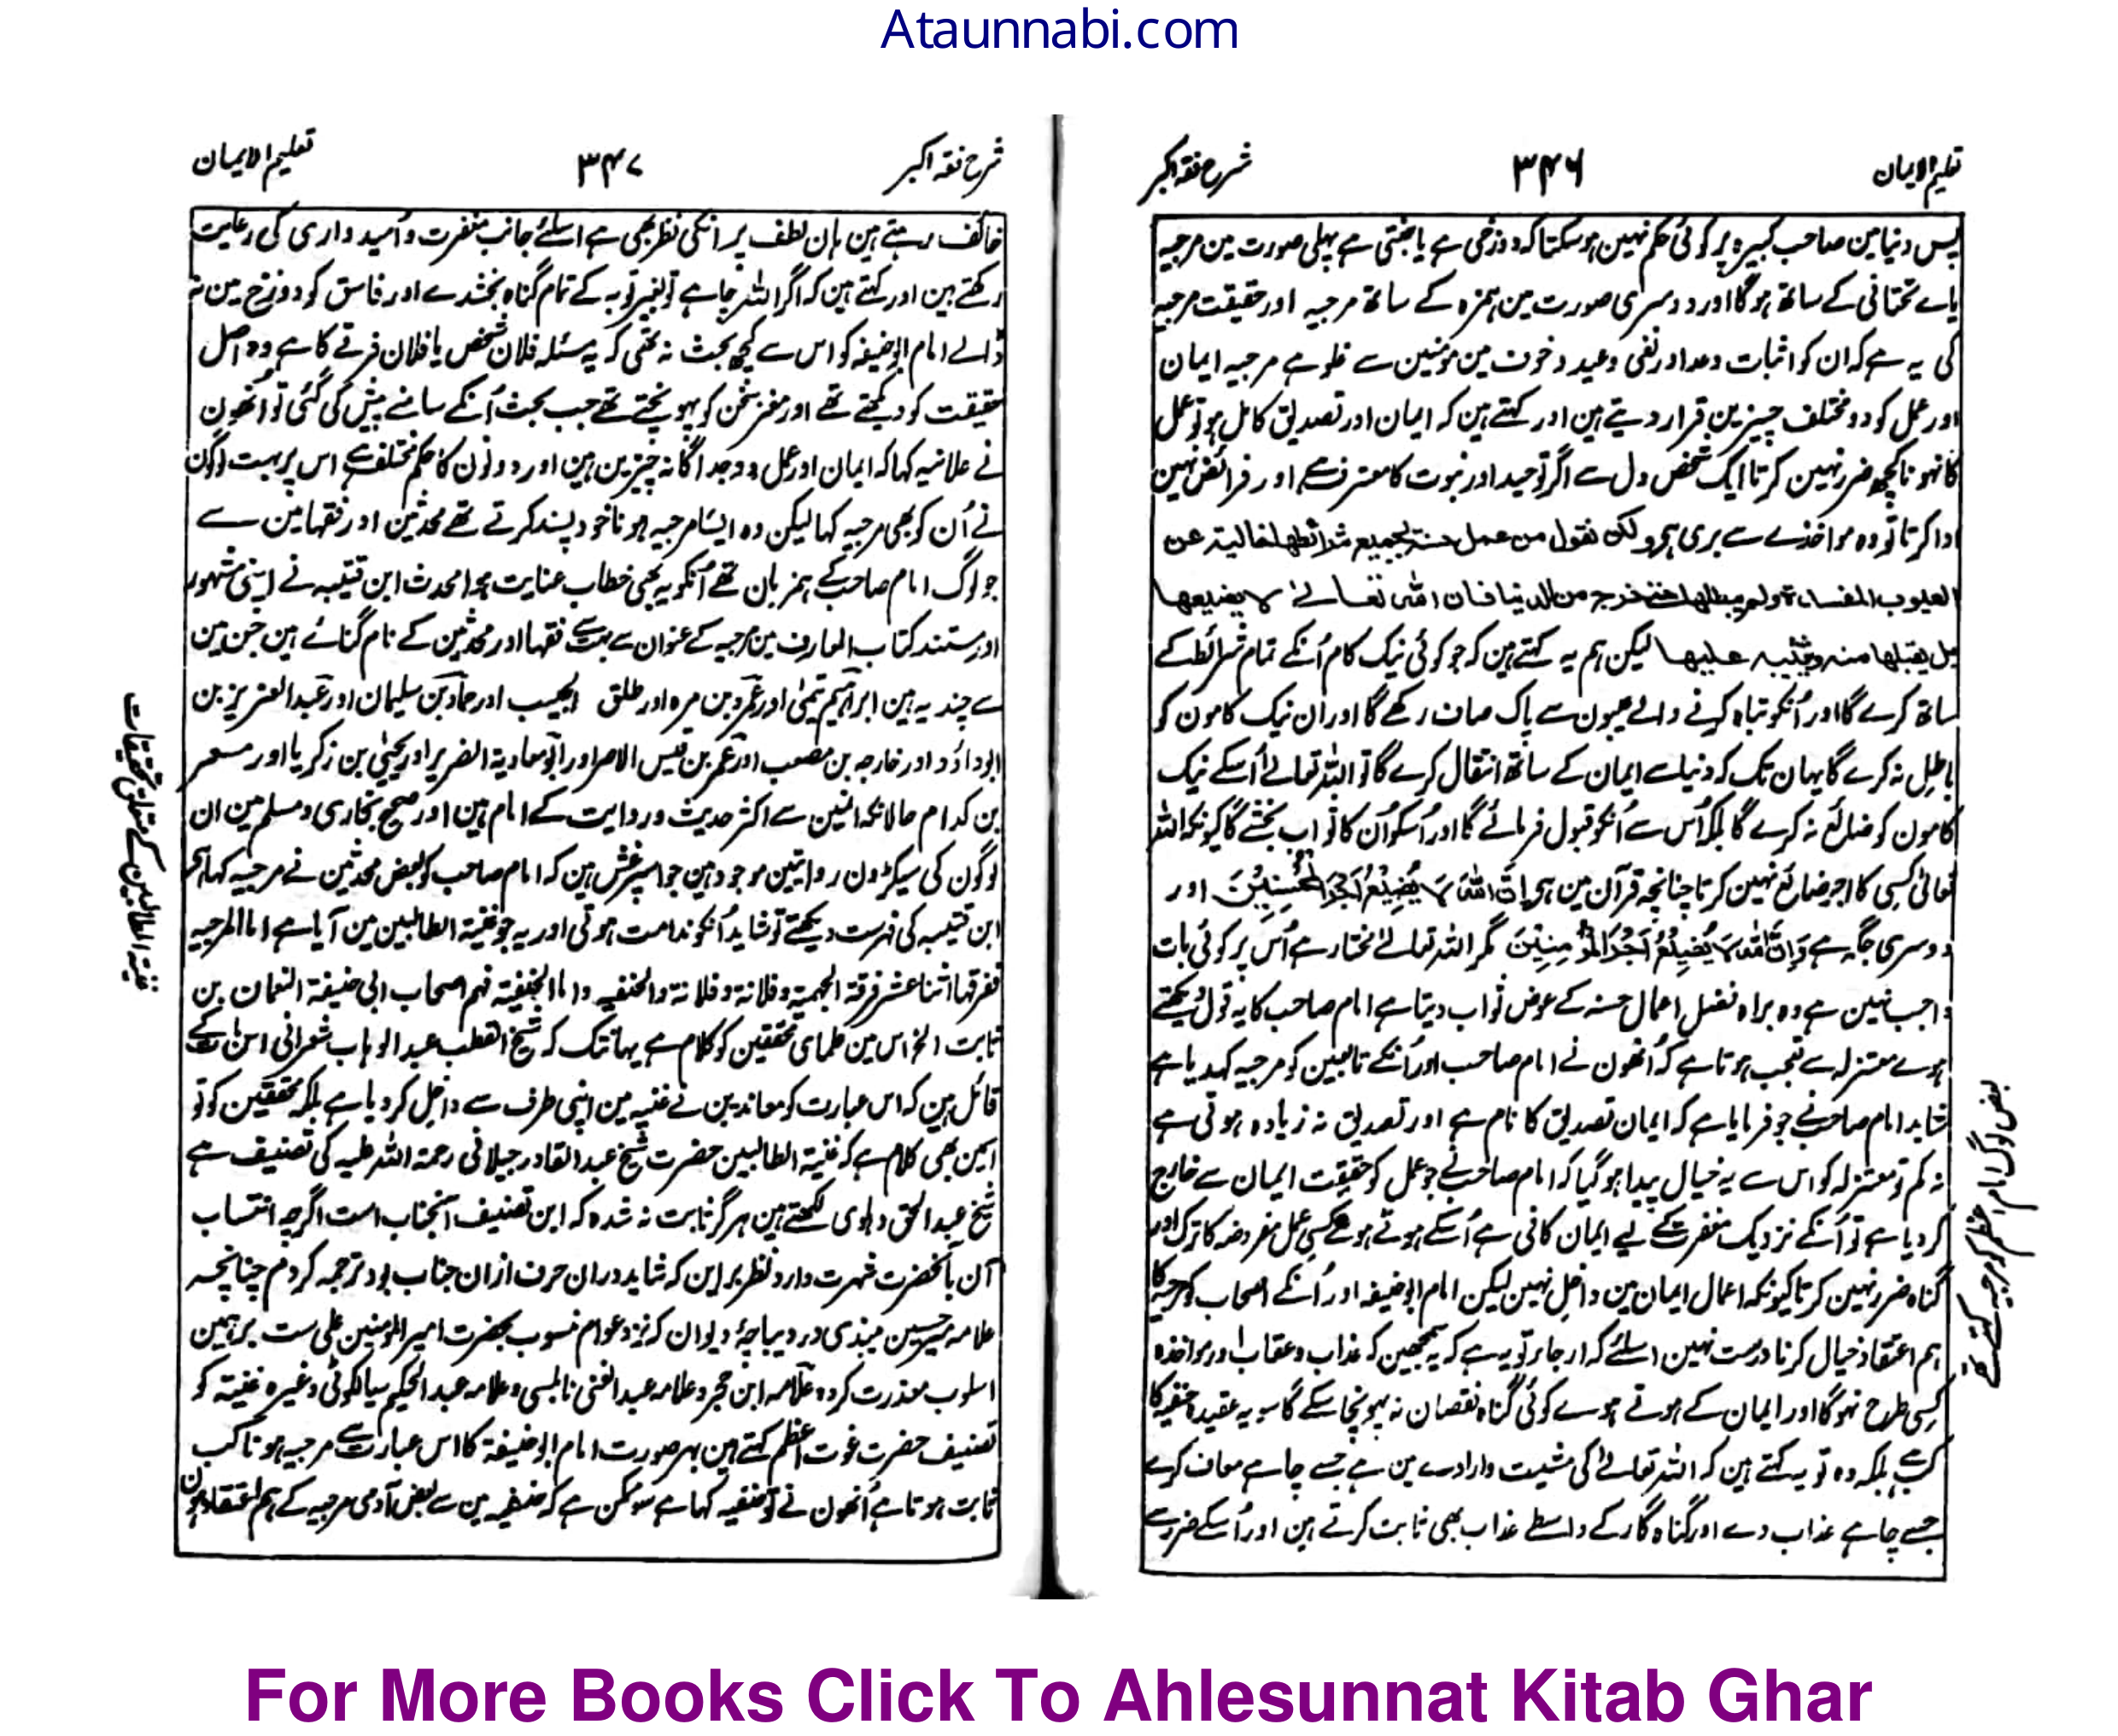 Ataunnabi.com
تعلیم الایمان
۳۴۶
شرح فقہ اکبر
پس دنیا مین صاحب کبیرہ پر کوئی حکم نہین ہوسکتا کہ دوزخی ہے یا جنتی ہے پہلی صورت مین مرجیہ
یاے تحتانی کے ساتھ ہوگا اور دوسری صورت مین ہمزہ کے ساتھ مرجیہ اور حقیقت مرجیہ
کی یہ ہے کہ ان کو اثبات وعد اور نفی وعید و خوف مین مؤنین سے غلو ہے مرجیہ ایمان
اور عمل کو دو مختلف چیزین قرار دیتے ہین اور کہتے ہین کہ ایمان اور تصدیق کامل ہو تو عمل
کا نہونا کچھ ضرر نہین کرتا ایک شخص دل سے اگر توحید اور نبوت کا معترف ہے اور فرائض نہین
ادا کرتا تو وہ مواخذے سے بری ہی ولکن نقول من عمل حسنۃ بجمیع شرائطھا خالیۃ عن
العیوب المفسدۃ ولم یبطلھا حتی خرج من الدنیا فان اللہ تعالیٰ لا یضیعھا
بل یقبلھا منہ ویثیبہ علیھا لیکن ہم یہ کہتے ہین کہ جو کوئی نیک کام اُنکے تمام شرائط کے
ساتھ کرے گا اور اُنکو تباہ کرنے والے عیبون سے پاک صاف رکھے گا اور ان نیک کامون کو
باطل نہ کرے گا یہان تک کہ دنیا سے ایمان کے ساتھ انتقال کرے گا تو اللہ تعالیٰ اُسکے نیک
کامون کو ضائع نہ کرے گا بلکہ اُس سے اُنکو قبول فرمائے گا اور اُسکو اُن کا ثواب بخشے گا کیونکہ اللہ
تعالیٰ کسی کا اجر ضائع نہین کرتا چنانچہ قرآن مین ہی اِنَّ اللّٰہَ لَا یُضِیْعُ اَجْرَ الْمُحْسِنِیْنَ اور
دوسری جگہ ہے وَاِنَّ اللّٰہَ لَا یُضِیْعُ اَجْرَ الْمُؤْمِنِیْنَ مگر اللہ تعالیٰ مختار ہے اُس پر کوئی بات
واجب نہین ہے وہ براہ فضل اعمال حسنہ کے عوض ثواب دیتا ہے امام صاحب کا یہ قول دیکھتے
ہوے معتزلہ سے تعجب ہوتا ہے کہ اُنھون نے امام صاحب اور اُنکے تابعین کو مرجیہ کہدیا ہے
شاید امام صاحب نے جو فرمایا ہے کہ ایمان تصدیق کا نام ہے اور تصدیق نہ زیادہ ہوتی ہے
نہ کم تو معتزلہ کو اس سے یہ خیال پیدا ہوگیا کہ امام صاحب نے جو عمل کو حقیقت ایمان سے خارج
کردیا ہے تو اُنکے نزدیک مغفرت کے لیے ایمان کافی ہے اُسکے ہوتے ہوے کسی عمل مفروضہ کا ترک اور
گناہ ضرر نہین کرتا کیونکہ اعمال ایمان مین داخل نہین لیکن امام ابوحنیفہ اور اُنکے اصحاب کو مرجیہ کا
ہم اعتقاد خیال کرنا درست نہین اسلئے کہ ارجا تو یہ ہے کہ یہ سمجھین کہ عذاب وعقاب اور مواخذہ
کسی طرح نہوگا اور ایمان کے ہوتے ہوے کوئی گناہ نقصان نہ پہونچا سکے گا سو یہ عقیدہ حنفیہ کا
کب ہے بلکہ وہ تو یہ کہتے ہین کہ اللہ تعالیٰ کی مشیت وارادے مین ہے جسے چاہے معاف کرے
جسے چاہے عذاب دے اور گناہ گار کے واسطے عذاب بھی ثابت کرتے ہین اور اُسکے ضرر سے
بعض لوگ امام اعظم کو مرجیہ کہتے تھے
شرح فقہ اکبر
۳۴۷
تعلیم الایمان
خائف رہتے ہین ہان لطف پر انکی نظر بھی ہے اسلئے جانب مغفرت و اُمید واری کی رعایت
رکھتے ہین اور کہتے ہین کہ اگر اللہ چاہے تو بغیر توبہ کے تمام گناہ بخشدے اور فاسق کو دوزخ مین نہ
ڈالے امام ابوحنیفہ کو اس سے کچھ بحث نہ تھی کہ یہ مسئلہ فلان شخص یا فلان فرقے کا ہے وہ اصل
حقیقت کو دیکھتے تھے اور مغز سخن کو پہونچتے تھے جب بحث اُنکے سامنے پیش کی گئی تو اُنھون
نے علانیہ کہا کہ ایمان اور عمل دو جداگانہ چیزین ہین اور دونون کا حکم مختلف ہے اس پر بہت لوگون
نے اُن کو بھی مرجیہ کہا لیکن وہ ایسا مرجیہ ہونا خود پسند کرتے تھے محدثین اور فقہا مین سے
جو لوگ امام صاحب کے ہمزبان تھے اُنکو یہ بھی خطاب عنایت ہوا محدث ابن قتیبہ نے اپنی مشہور
اور مستند کتاب المعارف مین مرجیہ کے عنوان سے بہت سے فقہا اور محدثین کے نام گنائے ہین جن مین
سے چند یہ ہین ابراہیم تیمی اور عمرو بن مرہ اور طلق الحبیب اور حماد بن سلیمان اور عبد العزیز بن
ابوداؤد اور خارجہ بن مصعب اور عمر بن قیس الاصر اور ابو معاویۃ الضریر اور یحییٰ بن زکریا اور مسعر
بن کدام حالانکہ انین سے اکثر حدیث و روایت کے امام ہین اور صحیح بخاری و مسلم مین ان
لوگون کی سیکڑون روایتین موجود ہین جو اسپر غش ہین کہ امام صاحب کو بعض محدثین نے مرجیہ کہا اگر
ابن قتیبہ کی فہرست دیکھتے تو شاید اُنکو ندامت ہوتی اور یہ جو غنیۃ الطالبین مین آیا ہے اما المرجیہ
ففرقہا اثنا عشر فرقۃ الجہمیۃ وفلانۃ وفلانۃ والحنفیہ واما الحنفیۃ فہم اصحاب ابی حنیفۃ النعمان بن
ثابت الخ اس مین علمای محققین کو کلام ہے یہانتک کہ شیخ القطب عبد الوہاب شعرانی اس بات کے
قائل ہین کہ اس عبارت کو معاندین نے غنیہ مین اپنی طرف سے داخل کردیا ہے بلکہ محققین کو تو
اسین بھی کلام ہے کہ غنیۃ الطالبین حضرت شیخ عبد القادر جیلانی رحمۃ اللہ علیہ کی تصنیف ہے
شیخ عبد الحق دہلوی لکھتے ہین ہرگز ثابت نہ شدہ کہ این تصنیف آنجناب است اگرچہ انتساب
آن بآنحضرت شہرت دارد نظر بر این کہ شاید دران حرف ازان جناب بود ترجمہ کردم چنانچہ
علامہ میر حسین میبذی در دیباجۂ دیوان کہ نزد عوام منسوب بحضرت امیر المومنین علی ست بر ہمین
اسلوب معذرت کردہ علامہ ابن حجر و علامہ عبد الغنی نابلسی و علامہ عبد الحکیم سیالکوٹی وغیرہ غنیۃ کو
تصنیف حضرت غوث اعظم کہتے ہین بہر صورت امام ابوحنیفہ کا اس عبارت سے مرجیہ ہونا کب
ثابت ہوتا ہے اُنھون نے تو حنفیہ کہا ہے سو ممکن ہے کہ حنفیہ مین سے بعض آدمی مرجیہ کے ہم اعتقاد ہون
غنیۃ الطالبین کے متعلق تحقیقات
For More Books Click To Ahlesunnat Kitab Ghar